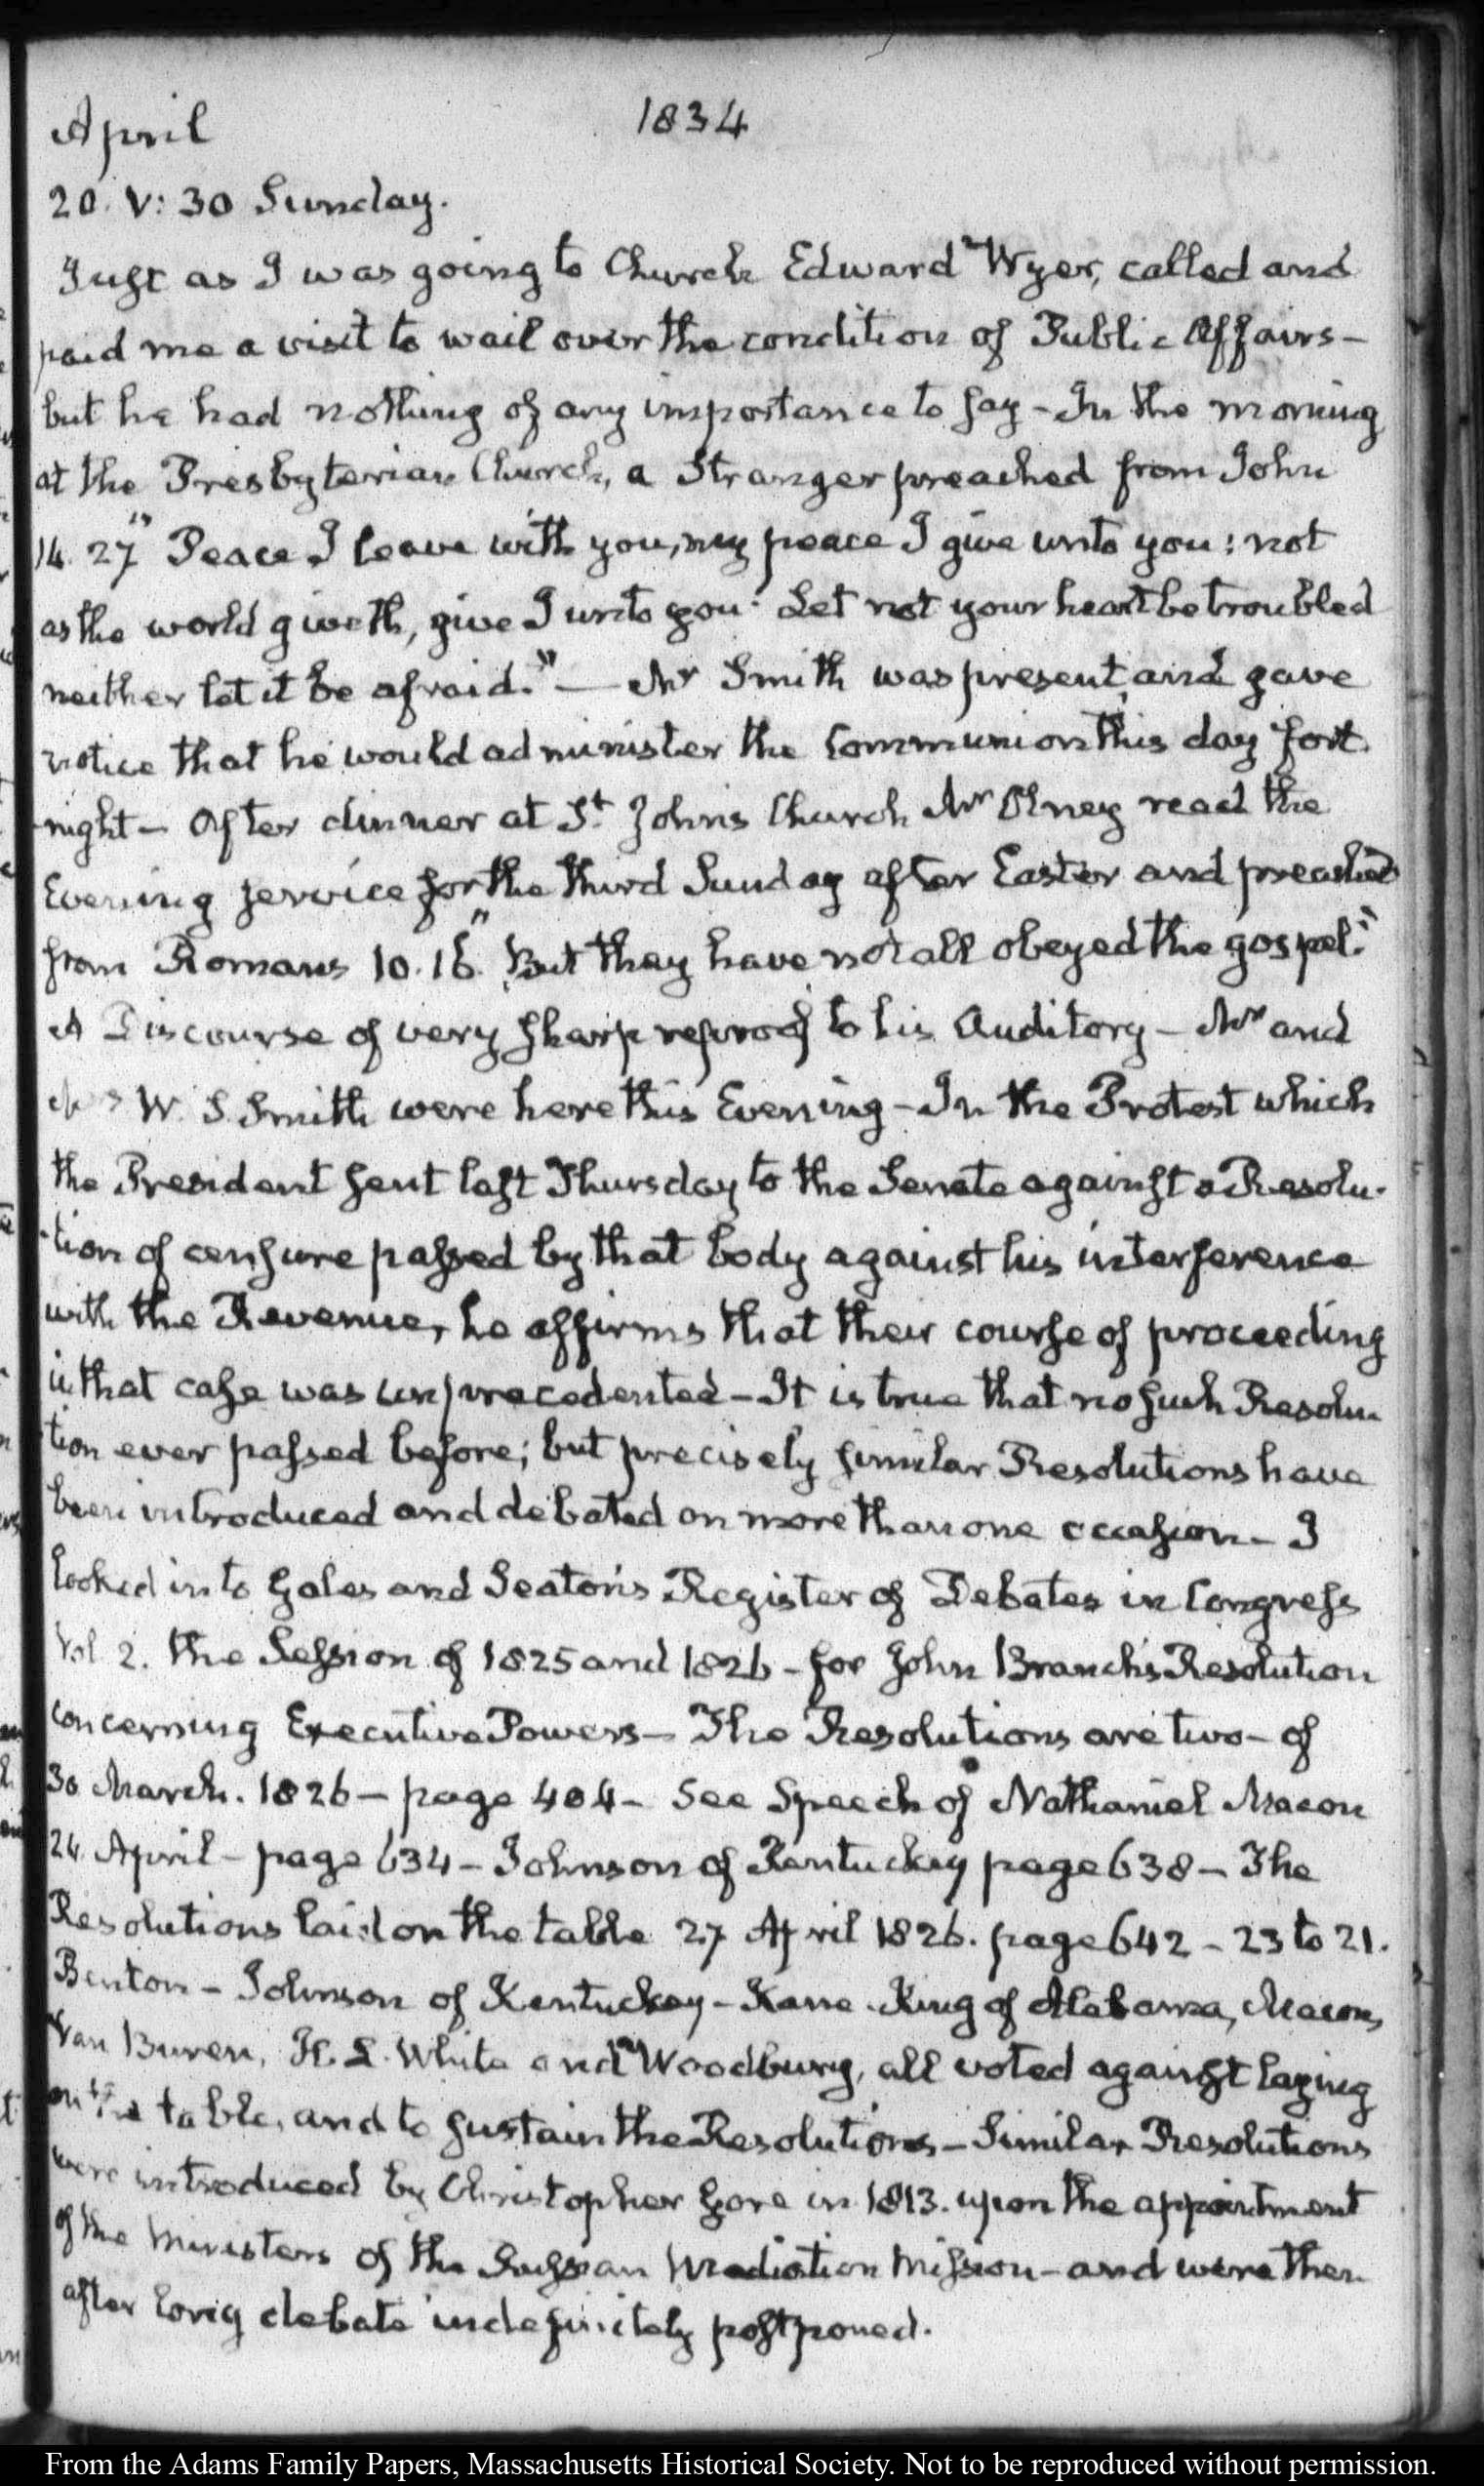 April
1834
20. V: 30 Sunday.
Just as I was going to Church Edward Wyer, called and
paid me a visit to wail over the condition of Public Affairs -
but he had nothing of any importance to say - In the morning
at the Presbyterian Church, a Stranger preached from John
14. 27 "Peace I leave with you, my peace I give unto you: not
as the world giveth, give I unto you. Let not your heart be troubled
neither let it be afraid." — Mr Smith was present, and gave
notice that he would administer the Communion this day fort
night - After dinner at St. John's Church Mr Olney read the
Evening service for the third Sunday after Easter and preached
from Romans 10. 16. "But they have not all obeyed the gospel."
A Discourse of very sharp reproof to his Auditory - Mr and
Mrs W. S. Smith were here this Evening - In the Protest which
the President sent last Thursday to the Senate against a Resolu-
tion of censure passed by that body against his interference
with the Revenue, he affirms that their course of proceeding
in that case was unprecedented - It is true that no such Resolu-
tion ever passed before; but precisely similar Resolutions have
been introduced and debated on more than one occasion - I
looked into Gales and Seaton's Register of Debates in Congress
Vol 2. the Session of 1825 and 1826 - for John Branch's Resolution
concerning Executive Powers - The Resolutions are two - of
30 March. 1826 - page 404 - See Speech of Nathaniel Macon
24 April - page 634 - Johnson of Kentucky page 638 - The
Resolutions laid on the table 27 April 1826. page 642 - 23 to 21.
Benton - Johnson of Kentuckey - Kane - King of Alabama, Macon,
Van Buren, H. L. White and Woodbury, all voted against laying
on the table, and to sustain the Resolutions - Similar Resolutions
were introduced by Christopher Gore in 1813. upon the appointment
of the Ministers of the Russian Mediation Mission - and were then
after long debate indefinitely postponed.
From the Adams Family Papers, Massachusetts Historical Society. Not to be reproduced without permission.